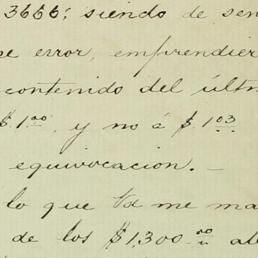 3666; siendo de sen
se error, emprendier
contenido del últ
$1.00, y no á $1.03
equivocacion. -
lo que Vd me ma
de los $1,300.00 al